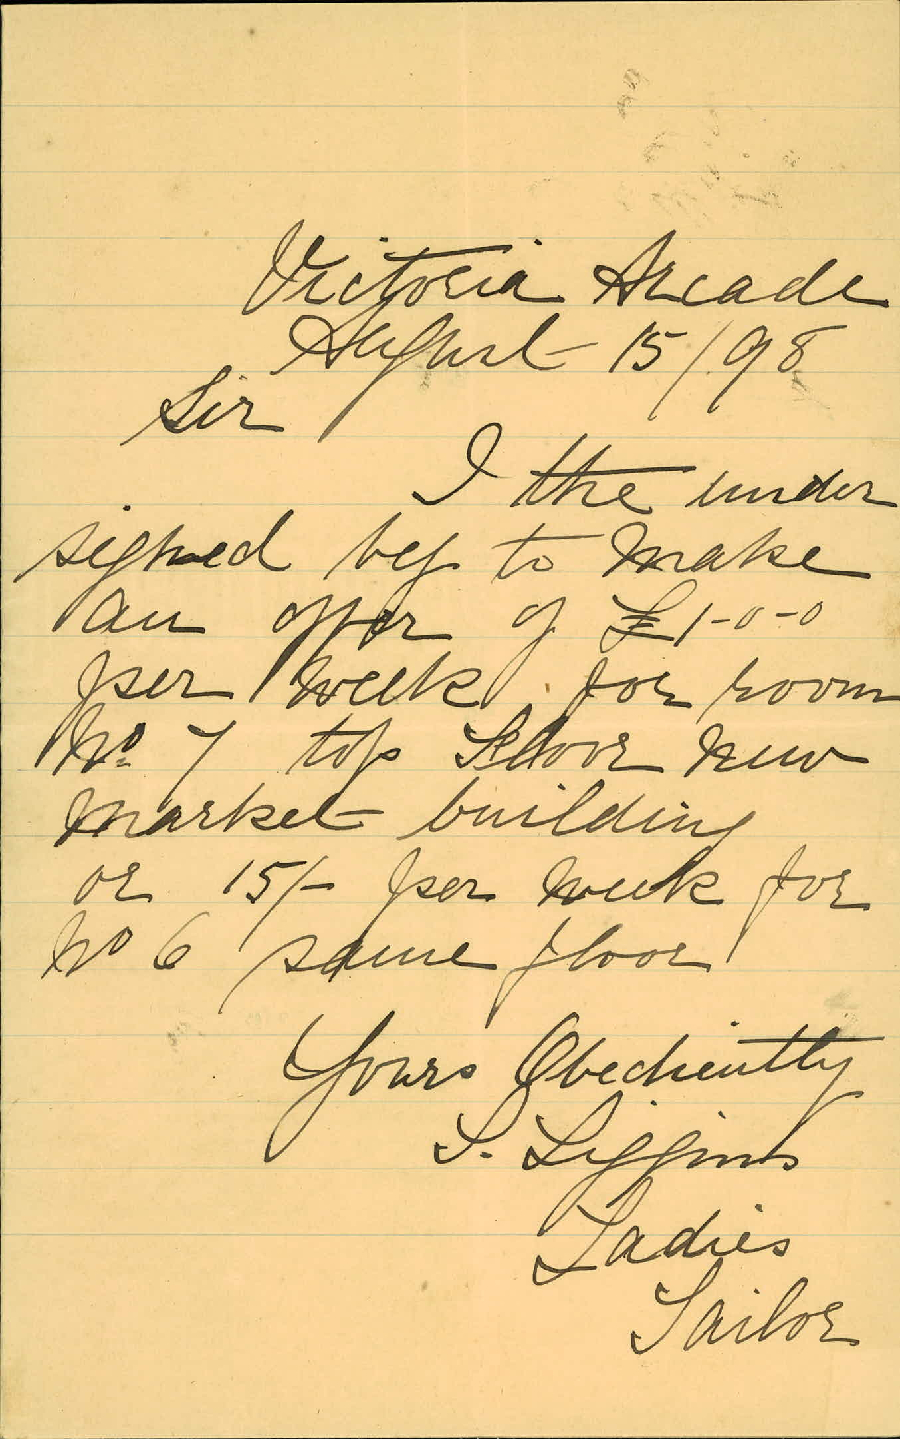 Victoria Arcade
August 15/98
Sir
I the under
signed beg to make
an offer of £1-0-0
per week for room
No. 7 top floor new
market building
or 15/- per week for
No 6 same floor
Yours Obediently
S. Liggins
Ladies
Tailor